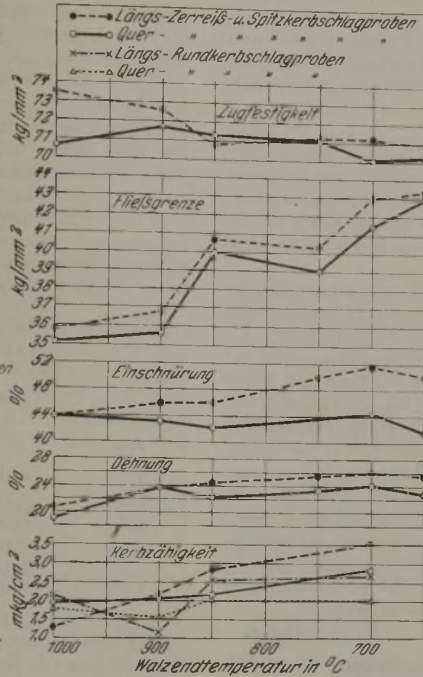 Längs-Zerreiß-u. Spitzkerbschlagproben
Quer - " " " " "
Längs-Rundkerbschlagproben
Quer - " " " "
kg/mm²
74
73
72
71
70
Zugfestigkeit
kg/mm²
44
43
42
41
40
39
38
37
36
35
Fließgrenze
%
52
48
44
40
Einschnürung
%
28
24
20
Dehnung
mkg/cm²
3,5
3,0
2,5
2,0
1,5
1,0
Kerbzähigkeit
1000 900 800 700
Walzendtemperatur in °C
en